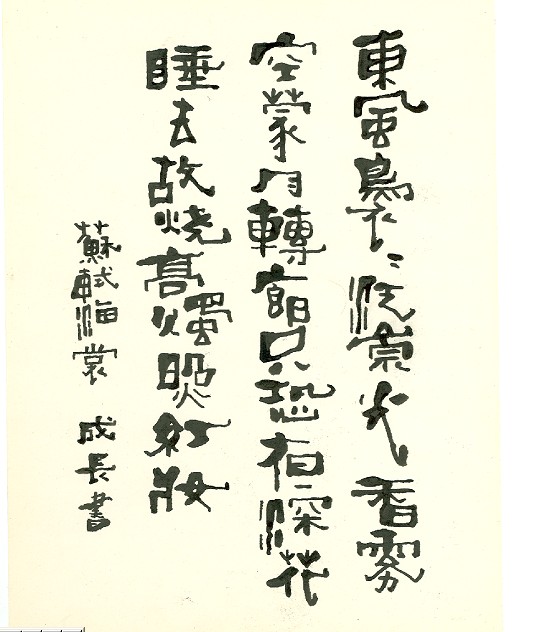 東風裊〻泛崇光香霧
空蒙月轉廊只恐夜深花
睡去故烧高燭照紅妝
蘇軾海棠 成長書